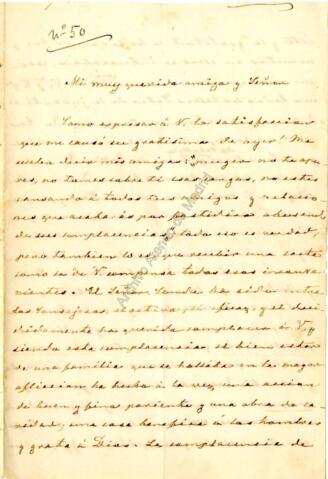 Nº 50
Mi muy querida amiga y Señor
Como expresar á V. la satisfaccion
que me causó su gratisima de ayer! Me
suelen decir mis amigas: muger no te apu
res, no tomes sobre ti esas cargas, no estes
cansando á todos tus amigos y relacio
nes que acabarás por fastidiar abusando
de sus complacencias, todo eso es verdad,
pero tambien lo es que recibir una carta
como la de V. compensa todos esos inconve
nientes. El Señor ha sido entre
los Consejeros el activo, el eficaz, y el de
cididamente ha querido complacer á V. y
siendo esta complacencia el bien estar
de una familia que se hallaba en la mayor
afliccion ha hecho á la vez una accion
de buen y fino pariente y una obra de ca
ridad, una cosa benefica á los hombres
y grata á Dios. La complacencia de
Archivo Madrid